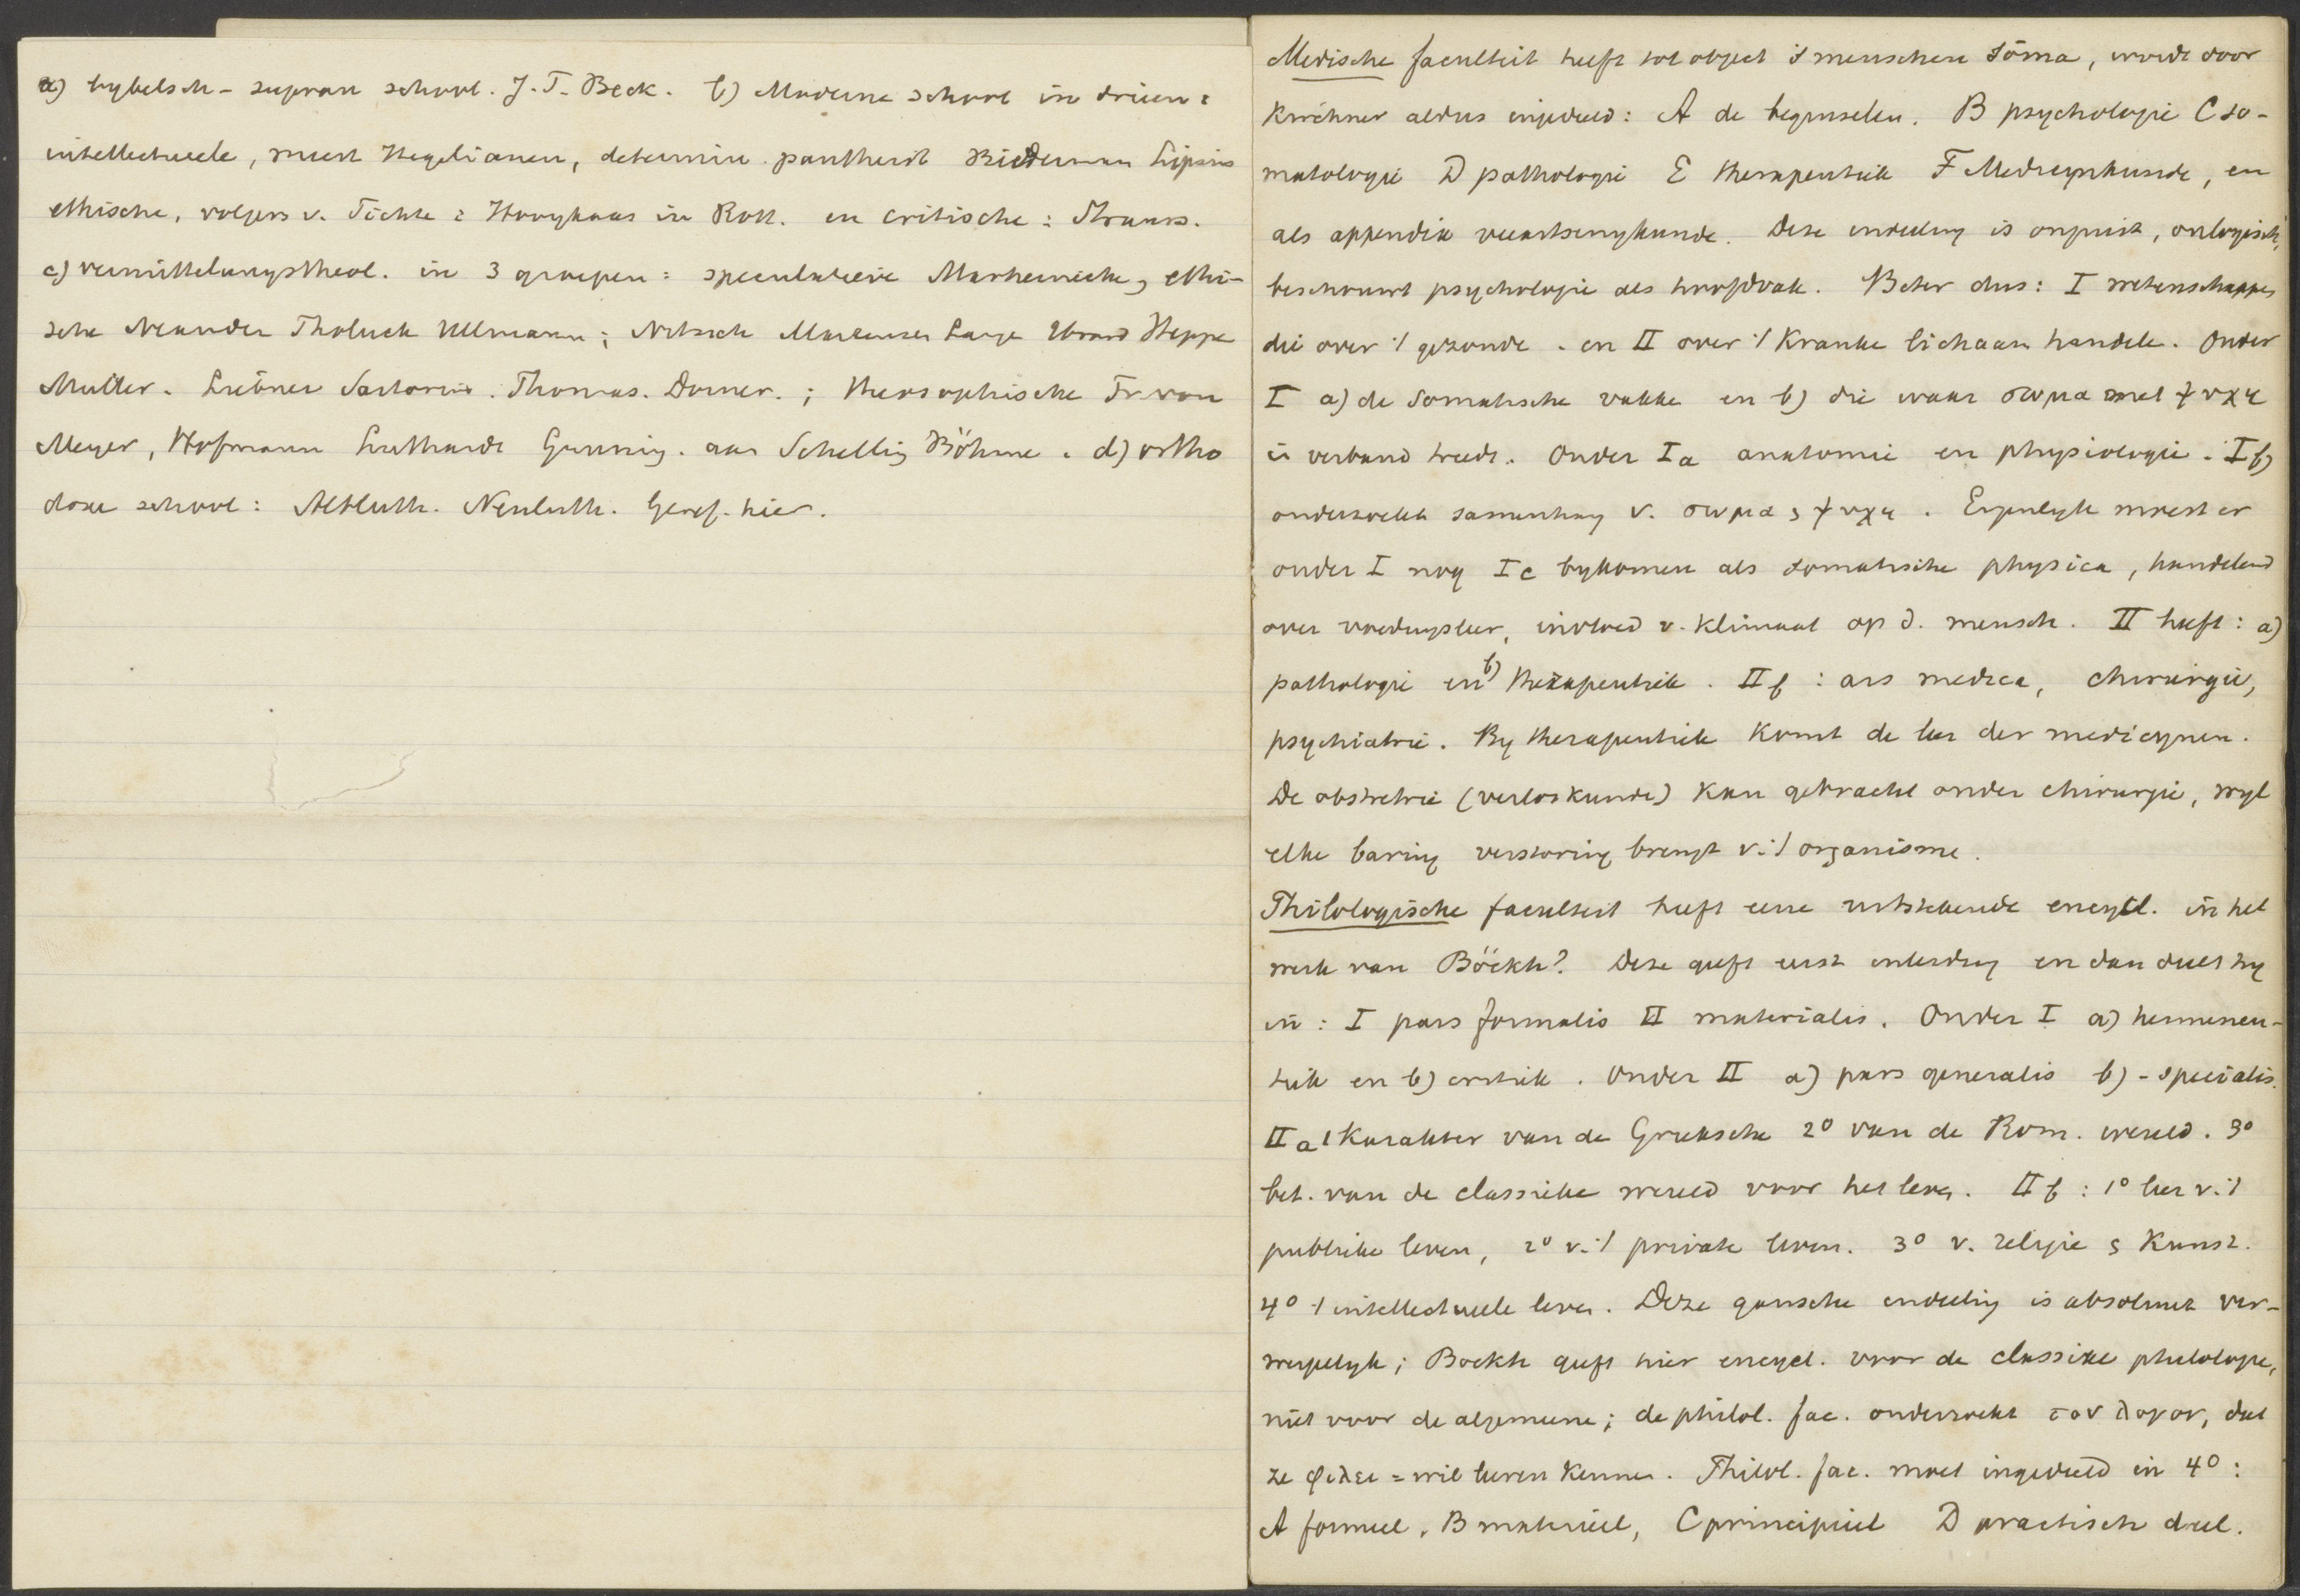 a) bybelsch - supran school. J. T. Beck. b) Moderne school in drieen:
intellectueele, meest Hegelianen, determin. pantheist Biederman Lipsius
ethische, volgers v. Fichte: Hooykaas in Rott. en critische: Strauss.
c) vermittelungstheol. in 3 groepen: speculatieve Marheinecke, ethi-
sche Neander Tholuck Ullmann; Nitzsch Martensen Lange Ebrard Heppe
Muller. Liebner Sartorius. Thomas. Dorner. ; theosophische Fr. von
Meyer, Hofmann Luthardt Gunning. aan Schelling Böhme. d) ortho
doxe school: Altluth. Neuluth. Geref. hier.
Medische faculteit heeft tot object 's menschen sōma, wordt door
Kirchner aldus ingedeeld: A de beginselen. B psychologie C so-
matologie D pathologie E therapeutiek F Medicynkunde, en
als appendix veeartsenykunde. Deze indeeling is onjuist, onlogisch,
beschouwt psychologie als hoofdvak. Beter dus: I wetenschappen
die over 't gezonde. en II over 't Kranke lichaam handelt. Onder
I a) de somatische vakke en b) die waar σωμα met ψυχη
in verband treedt. Onder Ia anatomie en physiologie. Ib)
onderzoekt samenhang v. σωμα & ψυχη. Eigenlyk moest er
onder I nog Ic bykomen als somatische physica, handelend
over voedingsleer, invloed v. klimaat op d. mensch. II heeft: a)
pathologie en b) therapeutiek. IIb: ars medica, chirurgie,
psychiatrie. By therapeutiek komt de leer der medicynen.
De obstretrie (verloskunde) kan gebracht onder chirurgie, wyl
elke baring verstoring brengt v. 't organisme.
Philologische faculteit heeft eene uitstekende encycl. in het
werk van Böckh? Deze geeft eerst inleiding en dan deelt hy
in: I pars formalis II materialis. Onder I a) hermeneu-
tiek en b) critiek. Onder II a) pars generalis b) - specialis.
IIa 1 Karakter van de Grieksche 2º van de Rom. wereld. 3º
bet. van de classieke wereld voor het leven. IIb: 1º leer v. 't
publieke leven, 2º v. 't private leven. 3º v. religie & Kunst.
4º 't intellectueele leven. Deze gansche indeeling is absoluut ver-
werpelyk; Boekh geeft hier encycl. voor de classieke philologie,
niet voor de algemeene; de philol. fac. onderzoekt τον λογον, dat
ze φιλει = wil leeren kennen. Philol. fac. moet ingedeeld in 4º:
A formeel, B materieel, C principieel D practisch deel.